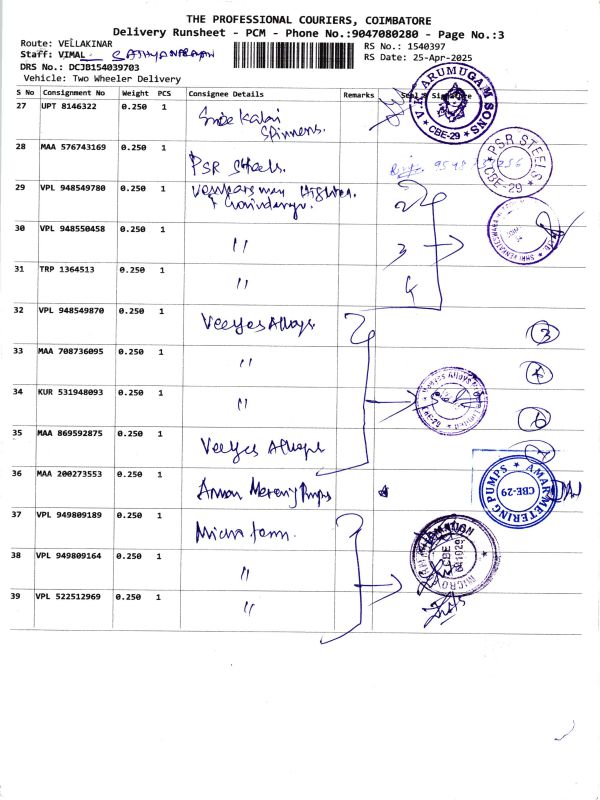 THE PROFESSIONAL COURIERS, COIMBATORE
Delivery Runsheet - PCM - Phone No.:9047080280 - Page No.:3
Route: VELLAKINAR
RS No.: 1540397
Staff: VIMAL
RS Date: 25-Apr-2025
DRS No.: DCJB154039703
Vehicle: Two Wheeler Delivery
S No Consignment No Weight PCS Consignee Details Remarks Seal & Signature
27 UPT 8146322 0.250 1 Sree Kalai
Spinners.
V.K. ARUMUGAM SONS
* CBE-29 *
28 MAA 576743169 0.250 1 PSR Steels.
PSR STEELS
CBE-29
29 VPL 948549780 0.250 1
2
30 VPL 948550458 0.250 1 " 3
31 TRP 1364513 0.250 1 " 4
32 VPL 948549870 0.250 1 Veeyes Alloys 3
33 MAA 708736095 0.250 1 " 4
34 KUR 531948093 0.250 1 " 6
35 MAA 869592875 0.250 1 Veeyes Alloys 7
36 MAA 200273553 0.250 1 Pumps
AMAR METERING PUMPS
CBE-29
37 VPL 949809189 0.250 1 Micro
38 VPL 949809164 0.250 1 "
39 VPL 522512969 0.250 1 "